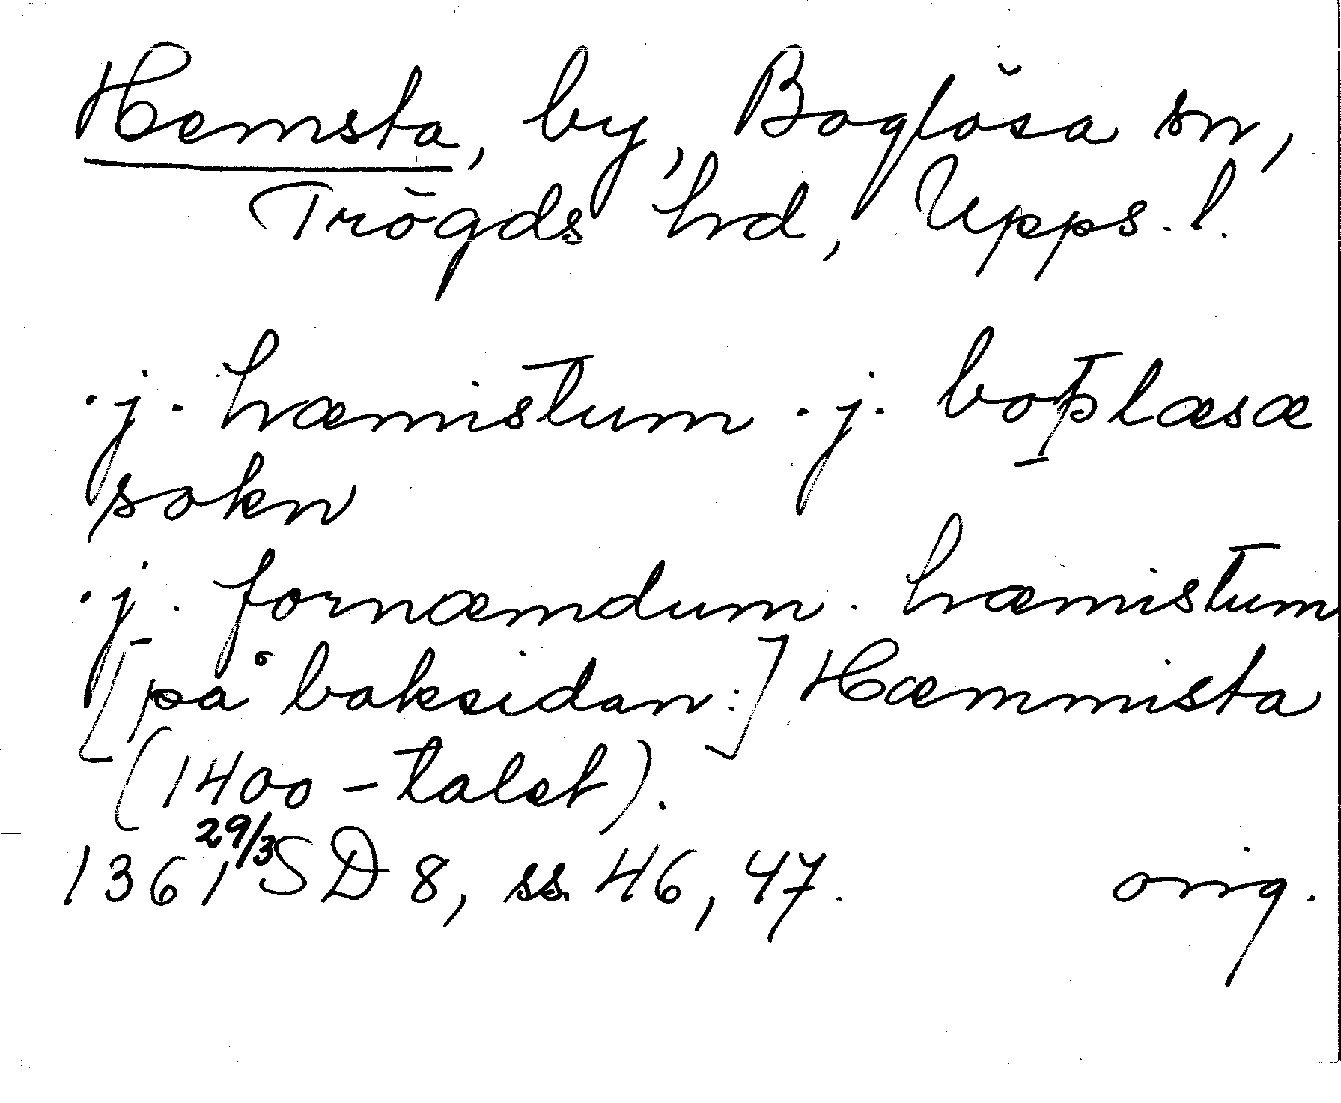 Hemsta, by, Boglösa sn,
Trögds hd, Upps. l.
.j. hæmistum .j. boþlæsæ
sokn
.j. fornæmdum. hæmistum
[på baksidan:] Hæmmista
(1400-talet).
1361 29/3 SD 8, ss. 46, 47. orig.